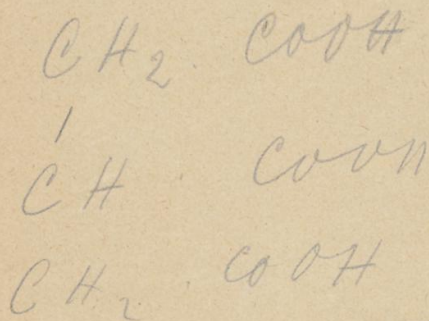 CH2 COOH
CH · COOH
CH2 · COOH